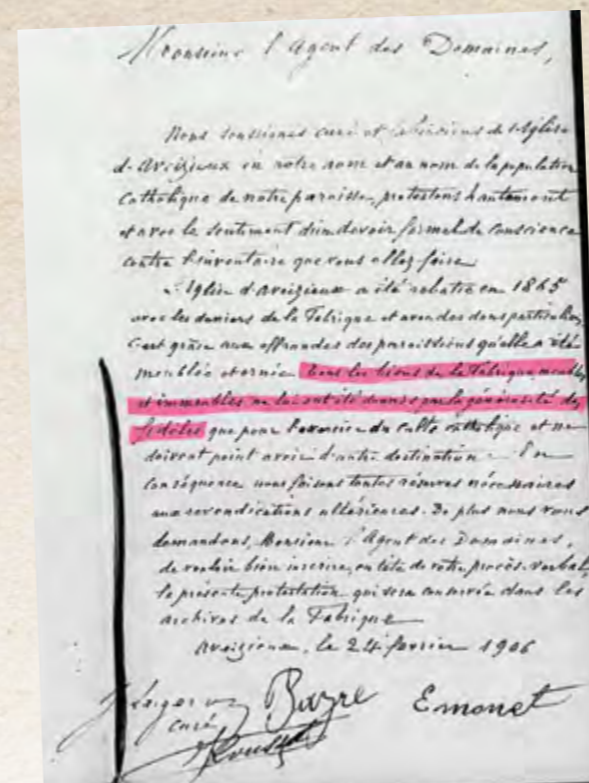 Monsieur l'Agent des Domaines,
Nous soussignés curé et fabriciens de l'église
d'Aveizieux en notre nom et au nom de la population
Catholique de notre paroisse, protestons hautement
et avec le sentiment d'un devoir formel de conscience
contre l'inventaire que vous allez faire.
L'église d'Aveizieux a été rebatie en 1865
avec les deniers de la Fabrique et avec des dons particuliers,
C'est grâce aux offrandes des paroissiens qu'elle a été
meublée et ornée. Tous les biens de la Fabrique meubles
et immeubles ne lui ont été donnés par la générosité des
fidèles que pour l'exercice du culte catholique et ne
doivent point avoir d'autre destination. En
Conséquence nous faisons toutes réserves nécessaires
aux revendications ultérieures. De plus nous vous
demandons, Monsieur l'Agent des Domaines,
de vouloir bien inscrire, en tête de votre procès-verbal,
la présente protestation qui sera conservée dans les
archives de la Fabrique
Aveizieux, le 24 février 1906
Bayre Emonet
curé